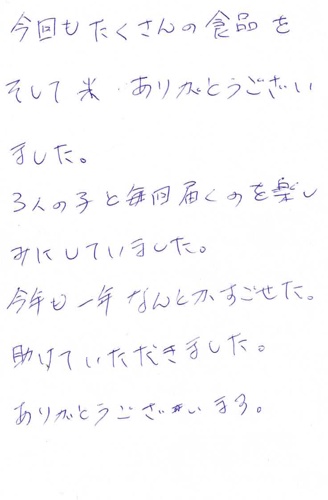 今回もたくさんの食品を
そして米、ありがとうござい
ました。
3人の子と毎回届くのを楽し
みにしていました。
今年も一年なんとかすごせた。
助けていただきました。
ありがとうございます。